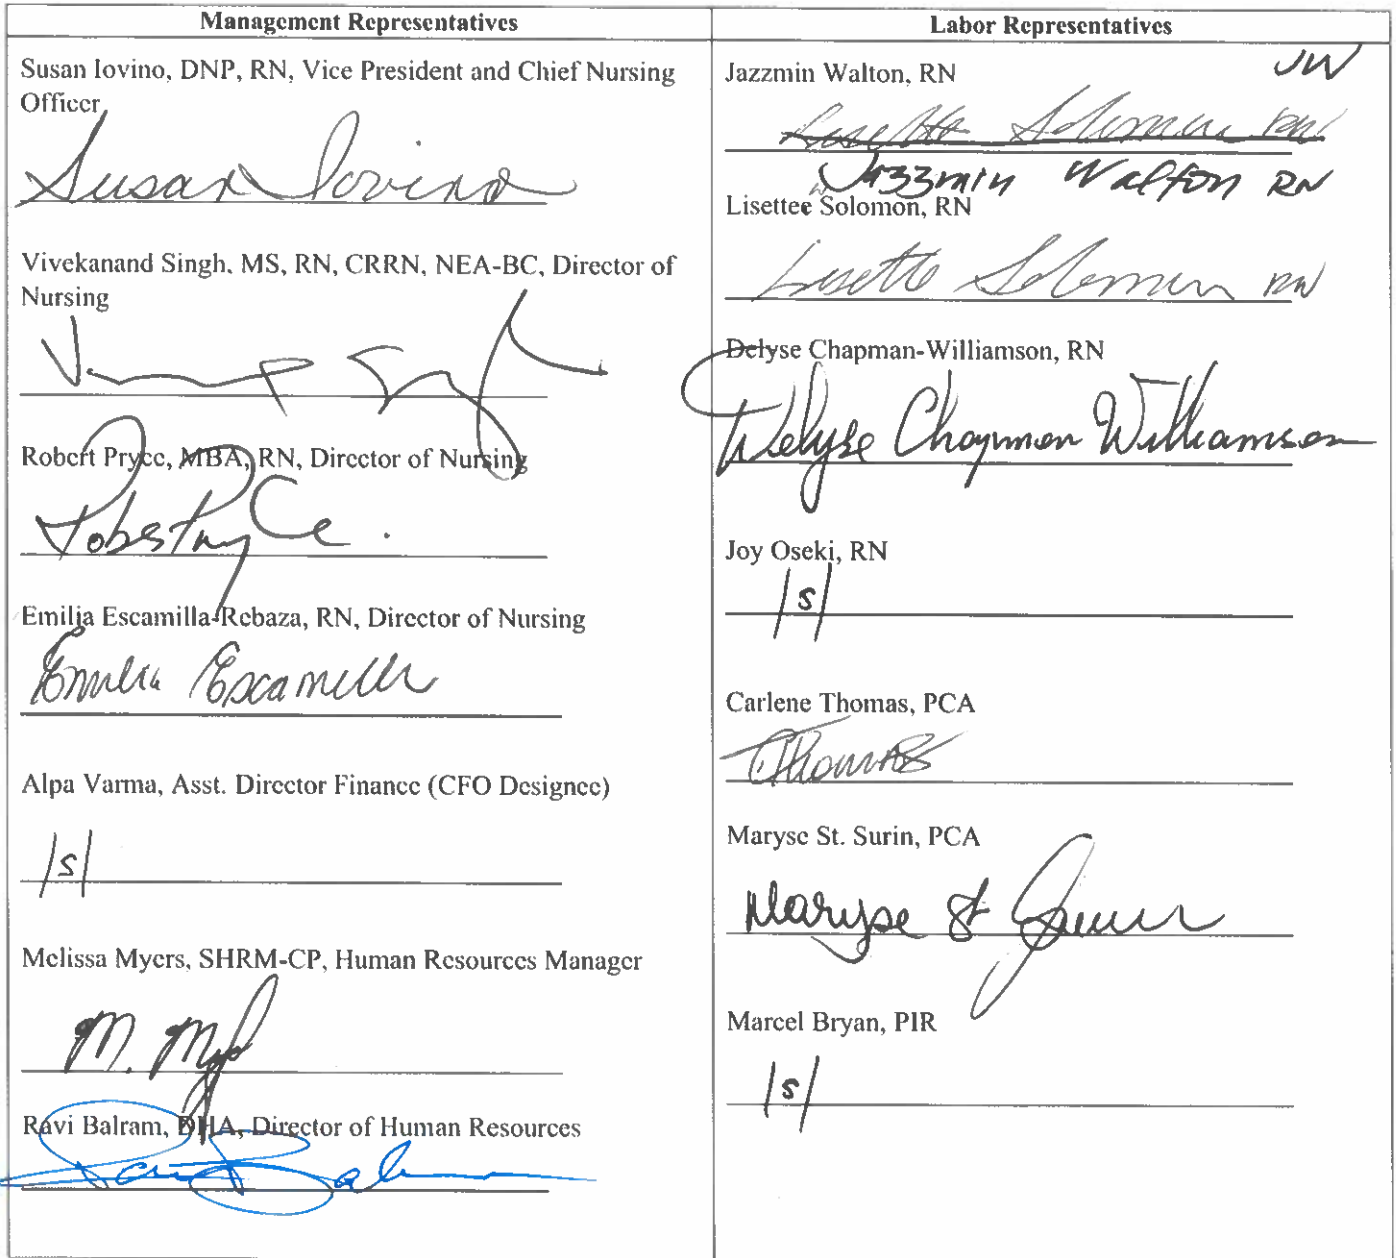 Management Representatives
Susan Iovino, DNP, RN, Vice President and Chief Nursing
Officer
Susan Iovino
Vivekanand Singh, MS, RN, CRRN, NEA-BC, Director of
Nursing
Robert Pryce, MBA, RN, Director of Nursing
Emilia Escamilla-Rebaza, RN, Director of Nursing
Emilia Escamilla
Alpa Varma, Asst. Director Finance (CFO Designee)
/s/
Melissa Myers, SHRM-CP, Human Resources Manager
Ravi Balram, DHA, Director of Human Resources
Labor Representatives
Jazzmin Walton, RN
JW
Lisette Solomon RN
Jazzmin Walton RN
Lisettee Solomon, RN
Lisette Solomon RN
Delyse Chapman-Williamson, RN
Delyse Chapman Williamson
Joy Oseki, RN
/s/
Carlene Thomas, PCA
CThomas
Maryse St. Surin, PCA
Maryse St Surin
Marcel Bryan, PIR
/s/